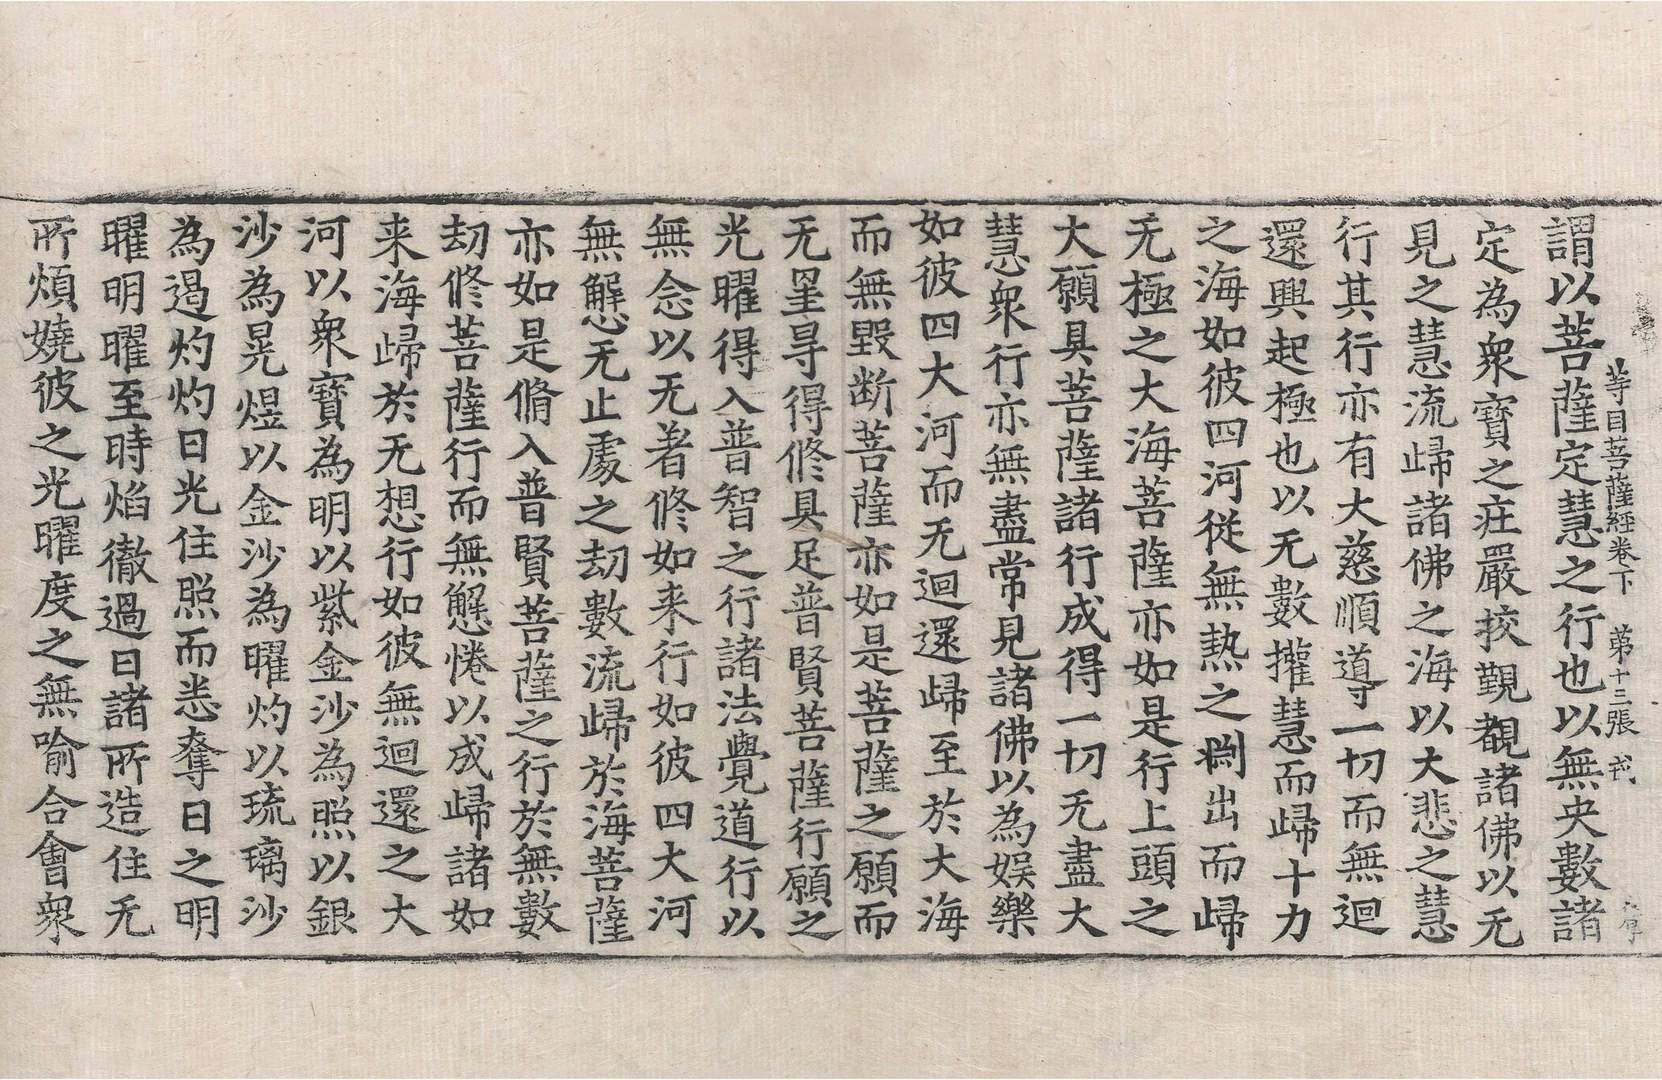 等目菩薩經卷下 第十三張 戎
謂以菩薩定慧之行也以無央數諸
定為衆寶之莊嚴挍觀覩諸佛以无
見之慧流歸諸佛之海以大悲之慧
行其行亦有大慈順導一切而無迴
還興起極也以无數攉慧而歸十力
之海如彼四河從無熱之淵出而歸
无極之大海菩薩亦如是行上頭之
大願具菩薩諸行成得一切无盡大
慧衆行亦無盡常見諸佛以為娱樂
如彼四大河而无迴還歸至於大海
而無毀断菩薩亦如是菩薩之願而
无罣㝵得修具足普賢菩薩行願之
光曜得入普智之行諸法覺道行以
無念以无著修如来行如彼四大河
無懈怠无止處之劫數流歸於海菩薩
亦如是脩入普賢菩薩之行於無數
劫修菩薩行而無懈惓以成歸諸如
来海歸於无想行如彼無迴還之大
河以衆寶為明以紫金沙為照以銀
沙為晃煜以金沙為曜灼以琉璃沙
為遏灼灼日光住照而恚奪日之明
曜明曜至時焰徹過日諸所造住无
所煩嬈彼之光曜度之無喻合會衆